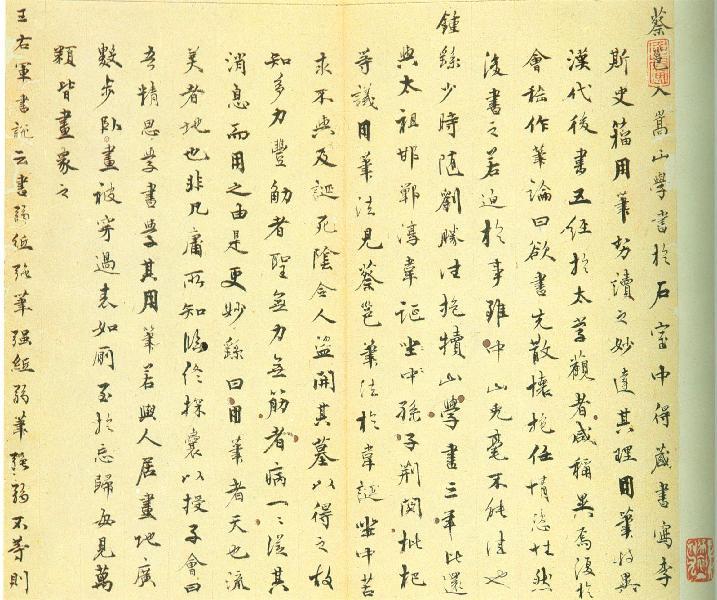 蔡邕入嵩山學書於石室中得藏書寫李
斯史籀用筆勢讀之妙達其理用筆特異
漢代後書五經於太學觀者咸稱異焉復於
會稽作筆論曰欲書先散懷抱任情恣性然
後書之若迫於事雖中山兔毫不能佳也
鍾繇少時隨劉勝往抱犢山學書三年比還
與太祖邯鄲淳韋誕坐中孫子荊關枇杷
等議用筆法見蔡邕筆法於韋誕坐中苦
求不與及誕死陰令人盜開其墓以得之故
知多力豐觔者聖無力無筋者病一一從其
消息而用之由是更妙繇曰用筆者天也流
美者地也非凡庸所知臨終探囊以授子會曰
吾精思學書學其用筆若與人居畫地廣
數步臥畫被穿過表如厠至於忘歸每見萬
類皆畫象之
王右軍書說云書弱紙強筆強紙弱筆強弱不等則